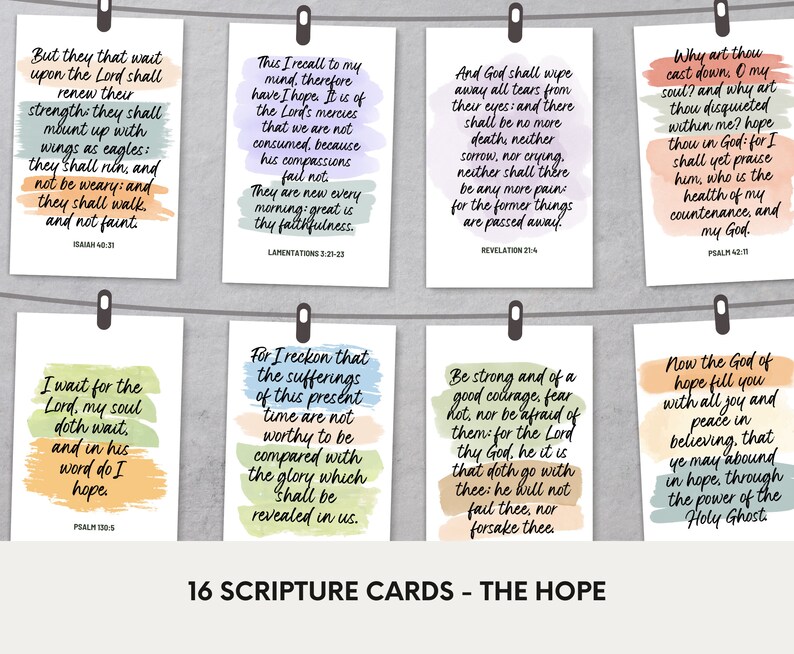 But they that wait
upon the Lord shall
renew their
strength; they shall
mount up with
wings as eagles;
they shall run, and
not be weary; and
they shall walk,
and not faint.
ISAIAH 40:31
This I recall to my
mind, therefore
have I hope. It is of
the Lord's mercies
that we are not
consumed, because
his compassions
fail not.
They are new every
morning: great is
thy faithfulness.
LAMENTATIONS 3:21-23
And God shall wipe
away all tears from
their eyes; and there
shall be no more
death, neither
sorrow, nor crying,
neither shall there
be any more pain:
for the former things
are passed away.
REVELATION 21:4
Why art thou
cast down, O my
soul? and why art
thou disquieted
within me? hope
thou in God: for I
shall yet praise
him, who is the
health of my
countenance, and
my God.
PSALM 42:11
I wait for the
Lord, my soul
doth wait,
and in his
word do I
hope.
PSALM 130:5
For I reckon that
the sufferings
of this present
time are not
worthy to be
compared with
the glory which
shall be
revealed in us.
Be strong and of a
good courage, fear
not, nor be afraid of
them: for the Lord
thy God, he it is
that doth go with
thee; he will not
fail thee, nor
forsake thee.
Now the God of
hope fill you
with all joy and
peace in
believing, that
ye may abound
in hope, through
the power of the
Holy Ghost.
16 SCRIPTURE CARDS - THE HOPE